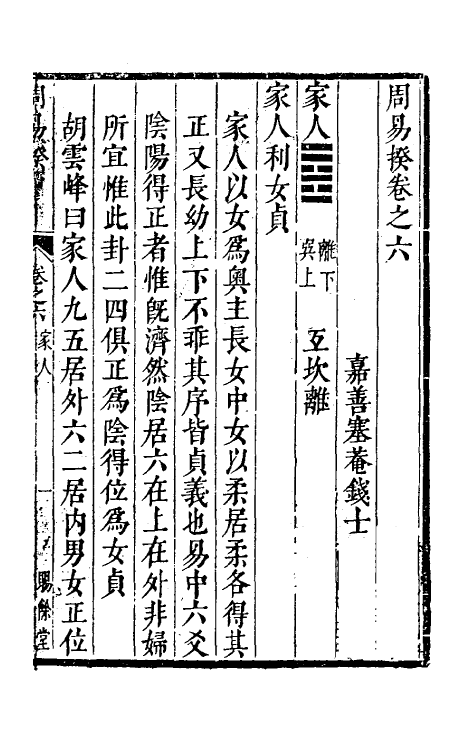 周易揆卷之六
嘉善塞菴錢士
家人䷤離下巽上 互坎離
家人利女貞
家人以女爲奥主長女中女以柔居柔各得其
正又長幼上下不乖其序皆貞義也易中六爻
陰陽得正者惟旣濟然陰居六在上在外非婦
所宜惟此卦二四俱正爲陰得位爲女貞
胡雲峰曰家人九五居外六二居内男女正位
周易揆 卷之六 家人 一 賜餘堂